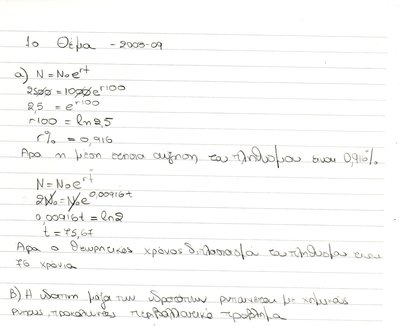 1ο Θέμα - 2008-09
α) N = N₀e^rt
2500 = 1000e^r100
2,5 = e^r100
r100 = ln2,5
r% = 0,916
Άρα η μέση ετήσια αύξηση του πληθυσμού είναι 0,916%
N = N₀e^rt
2N₀ = N₀e^0,00916t
0,00916t = ln2
t = 75,67
Άρα ο θεωρητικός χρόνος διπλασιασμού του πληθυσμού είναι
76 χρόνια
Β) Η υδάτινη μάζα των υδροτόπων ρυπαίνεται με χημικούς
ρύπους, προκαλώντας περιβαλλοντικό πρόβλημα